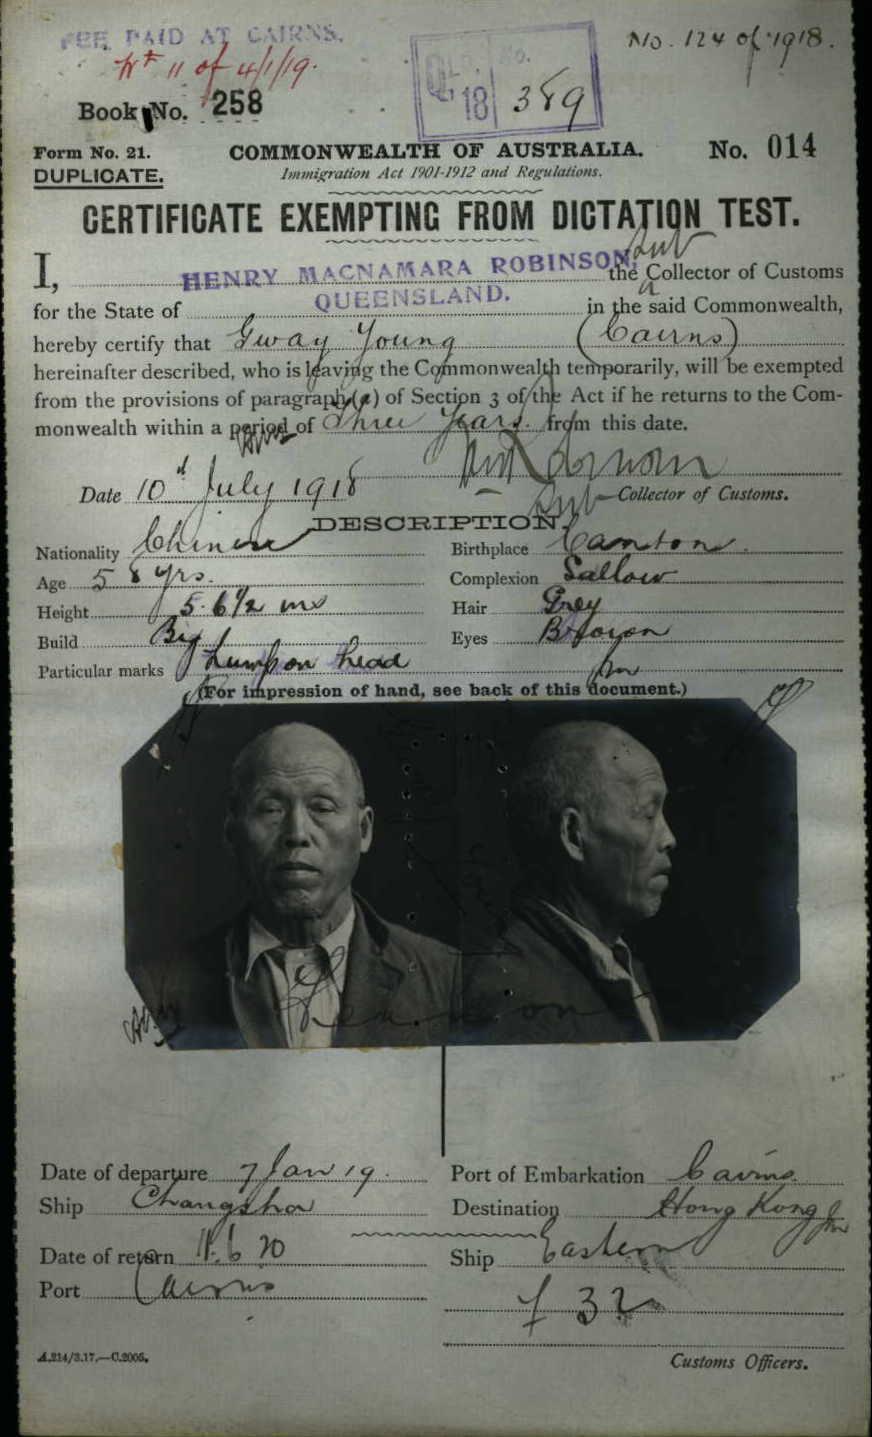 FEE PAID AT CAIRNS.
No. 124 of 1918.
11 of 4/1/19.
18 389
Book No. 258
Form No. 21.
COMMONWEALTH OF AUSTRALIA.
No. 014
DUPLICATE.
Immigration Act 1901-1912 and Regulations.
CERTIFICATE EXEMPTING FROM DICTATION TEST.
Sub
I, HENRY MACNAMARA ROBINSON, the Collector of Customs
for the State of QUEENSLAND. in the said Commonwealth,
hereby certify that Gway Young (Cairns)
hereinafter described, who is leaving the Commonwealth temporarily, will be exempted
from the provisions of paragraph (a) of Section 3 of the Act if he returns to the Com-
monwealth within a period of Three Years from this date.
Date 10th July 1918
Sub Collector of Customs.
DESCRIPTION.
Nationality Chinese
Birthplace Canton.
Age 58 yrs.
Complexion Sallow
Height 5. 6 1/2 ins
Hair Grey
Build Big
Eyes Brown
Particular marks Lump on head
(For impression of hand, see back of this document.)
Date of departure 7 Jan 19.
Port of Embarkation Cairns.
Ship Changsha
Destination Hong Kong
Date of return 11.6 20
Ship Eastern
Port Cairns
f 32
A.214/3.17.—C.2005.
Customs Officers.